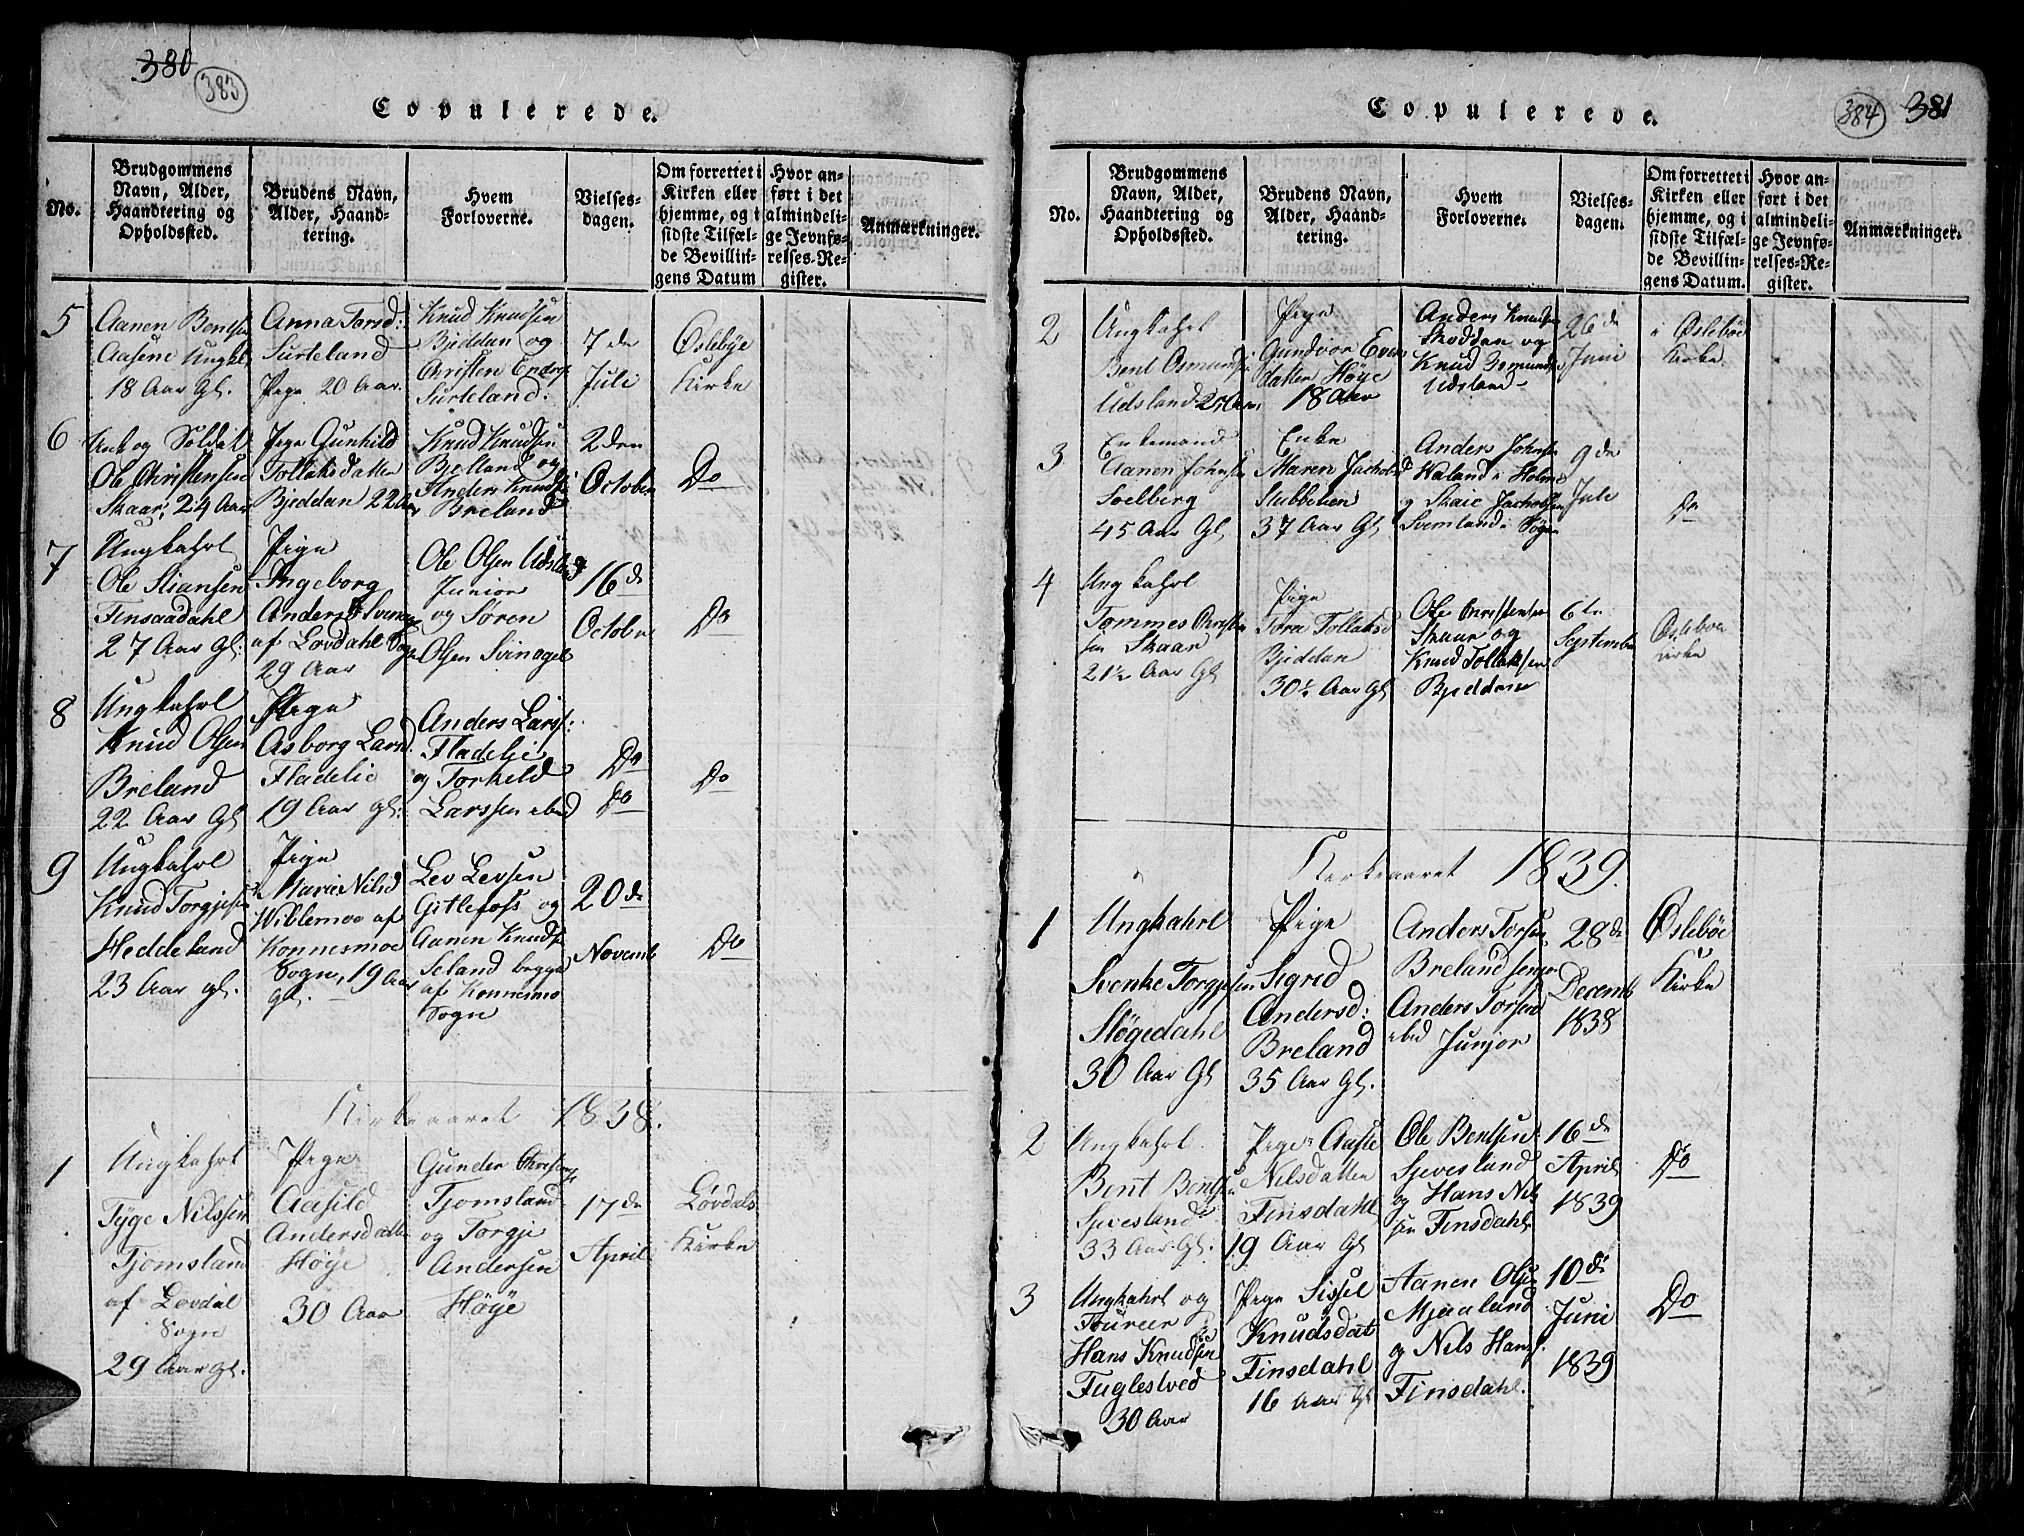 380
383
Copulerede.
No.
Brudgommens
Navn, Alder,
Haandtering og
Opholdssted.
Brudens Navn,
Alder, Haand-
tering.
Hvem
Forloverne.
Vielses-
dagen.
Om forrettet i
Kirken eller
hjemme, og i
sidste Tilfæl-
de Bevillin-
gens Datum
Hvor an-
ført i det
almindeli-
ge Jevnfø-
relses-Re-
gister.
Anmærkninger.
5
Aanen Bentsen
Aasene Ungk
18 Aar Gl.
Anna Torsd:
Surteland
Pige 20 Aar.
Knud Knudsen
Bieddan og
Christen Endres
Surteland.
7de
Juli
Øslebye
Kirke
6
og Soldat
Ole Christensen
Skaar, 24 Aar
Pige Gunhild
Tollaksdatter
Bjeddan 22 Aar
Knud Knudsen
Bjelland og
Anders Knuds
Breland
2den
October
Do
7
Ungkahrl
Ole Stiansen
Finsaadahl
27 Aar Gl:
Pige
Ingeborg
Andersd
af Løvdahl Sogn
29 Aar
Ole Olsen Udsland
Junior
og Søren
Olsen Svinogel
16de
October
Do
8
Ungkahrl
Knud Olsen
Breland
22 Aar Gl
Pige
Asborg Larsd
Fladelie
19 Aar gl:
Anders Larss:
Fladelie
og Torkeld
Larssen ibid
Do
Do
Do
9
Ungkahrl
Knud Torgjusen
Heddeland
23 Aar gl.
Pige
Marie Nilsd
Wiblemoe af
Konnesmoe
Sogn, 19 Aar
Gl.
Lev Levsen
Gitlefoss og
Aanen Knuds
Seland begge
af Konnesmo
Sogn
20de
Novemb
Do
Kirkeaaret 1838.
1
Ungkahrl
Tyge Nilssen
Tjomsland
af Løvdal
Sogn
29 Aar Gl.
Pige
Aasild
Andersdatter
Høye
30 Aar
Gunder
Tjomsland
og Torgje
Andersen
Høye
17de
April
Løvdals
Kirke
384
381
Copulerede.
No.
Brudgommens
Navn, Alder,
Haandtering og
Opholdssted.
Brudens Navn,
Alder, Haand-
tering.
Hvem
Forloverne.
Vielses-
dagen.
Om forrettet i
Kirken eller
hjemme, og i
sidste Tilfæl-
de Bevillin-
gens Datum.
Hvor an-
ført i det
almindeli-
ge Jevnfø-
relses-Re-
gister.
Anmærkninger.
2
Ungkahrl
Bent Osmunds
Udsland 25 Aar
Pige
Gundvor Even
datter Høye
18 Aar
Anders Knudsen
Skoddan og
Knud Osmunds
Udsland
26de
Juni
i Øslebøe
Kirke
3
Enkemand
Aanen Johnsen
Soelberg
45 Aar Gl
Enke
Maren Jachobsd
Stubberuen
37 Aar Gl
Anders Johnsen
Haland i Holme
og Skaie Jachobsen
Svemland i Søgne
9de
Juli
Do
4
Ungkahrl
Tommes Christen
sen Skaar
21½ Aar Gl
Pige
Tora Tollaksd
Bjeddan
30½ Aar Gl
Ole Christensen
Skaar og
Knud Tollaksen
Bjeddan
6te
September
Øslebøe
Kirke
Kirkeaaret 1839.
1
Ungkahrl
Svenke Torgjusen
Støgedahl
30 Aar Gl
Pige
Sigrid
Andersd:
Breland
35 Aar Gl.
Anders Torsen
Breland senjor
Anders Torsen
ibid Junjor
28de
Decemb
1838
Øslebøe
Kirke
2
Ungkahrl
Bent Bentsen
Sjevesland
33 Aar Gl.
Pige Aaste
Nilsdatter
Finsdahl
19 Aar Gl
Ole Bentsen
Sjevesland
og Hans Nils
sen Finsdahl
16de
April
1839
Do
3
Ungkahrl og
Foureer
Hans Knudsen
Fuglestved
30 Aar
Pige Sissel
Knudsdat
Finsdahl
16 Aar Gl
Aanen Olsen
Mjaaland
og Nils Hans.
Finsdahl.
10de
Juni
1839
Do